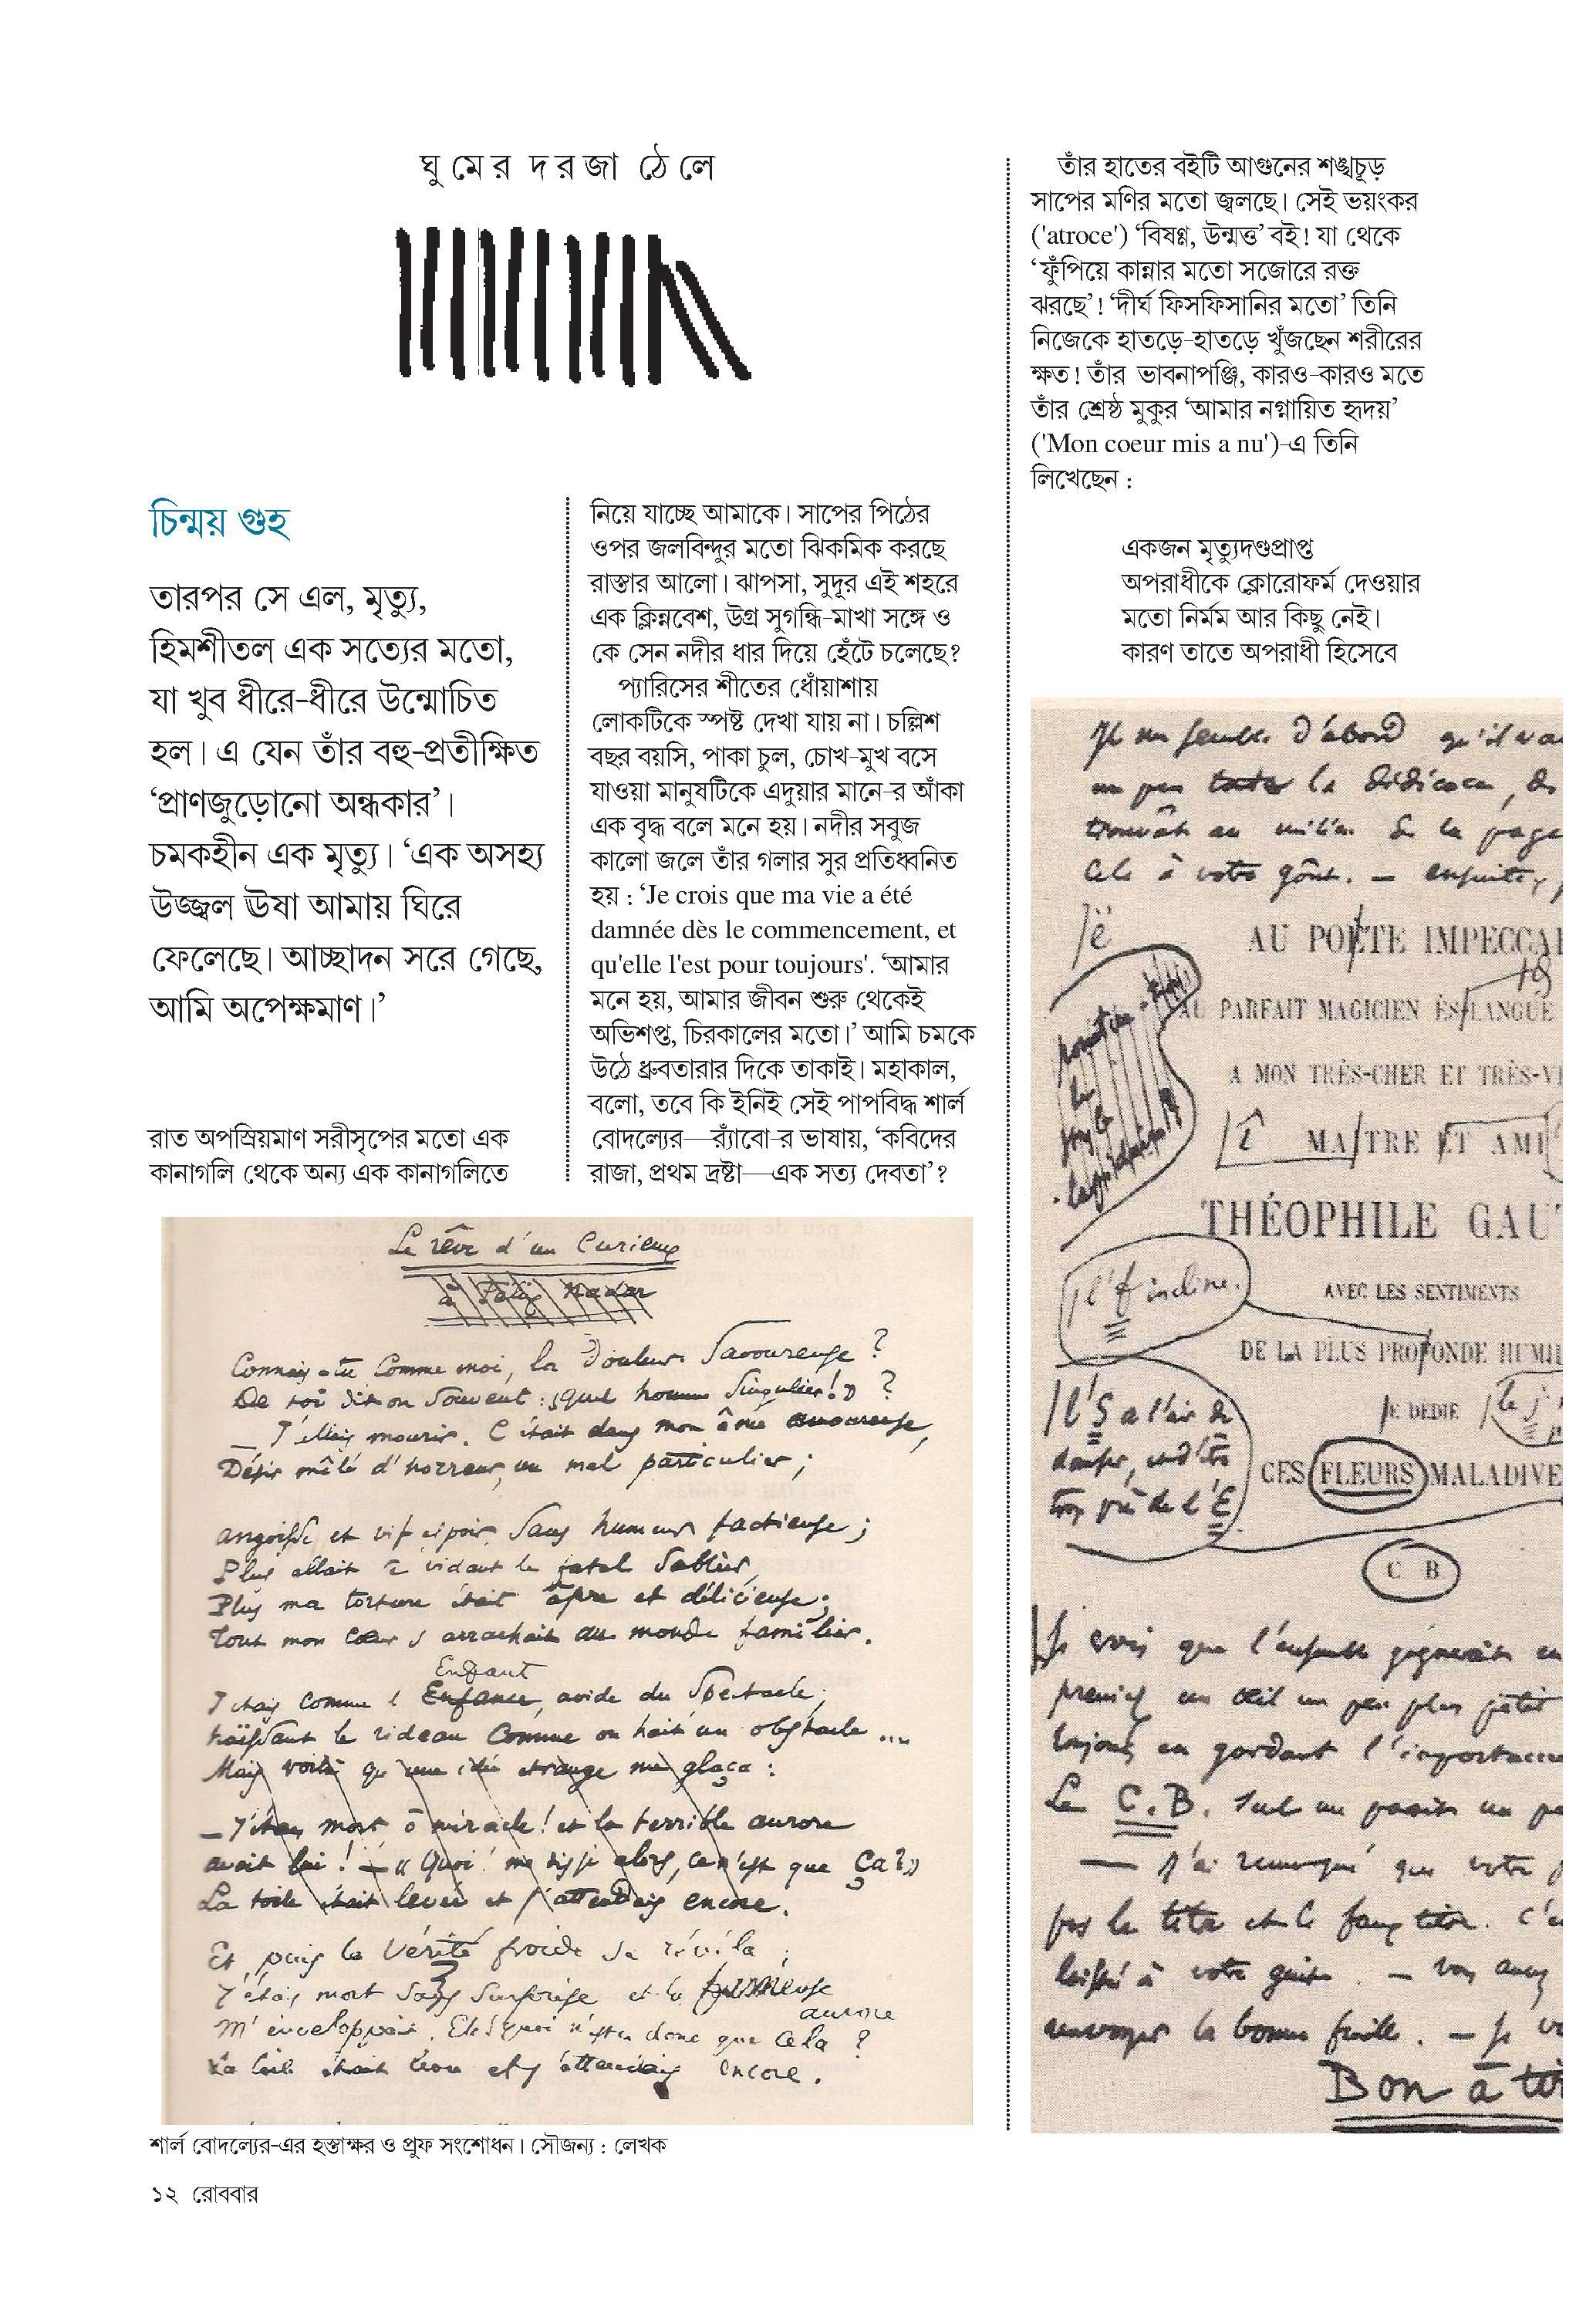 ঘুমের দরজা ঠেলে
চিন্ময় গুহ
তারপর সে এল, মৃত্যু,
হিমশীতল এক সত্যের মতো,
যা খুব ধীরে-ধীরে উন্মোচিত
হল। এ যেন তাঁর বহু-প্রতীক্ষিত
‘প্রাণজুড়োনো অন্ধকার’।
চমকহীন এক মৃত্যু। ‘এক অসহ্য
উজ্জ্বল ঊষা আমায় ঘিরে
ফেলেছে। আচ্ছাদন সরে গেছে,
আমি অপেক্ষমাণ।’
রাত অপস্রিয়মাণ সরীসৃপের মতো এক
কানাগলি থেকে অন্য এক কানাগলিতে
নিয়ে যাচ্ছে আমাকে। সাপের পিঠের
ওপর জলবিন্দুর মতো ঝিকমিক করছে
রাস্তার আলো। ঝাপসা, সুদূর এই শহরে
এক ক্লিন্নবেশ, উগ্র সুগন্ধি-মাখা সঙ্গে ও
কে সেন নদীর ধার দিয়ে হেঁটে চলেছে?
প্যারিসের শীতের ধোঁয়াশায়
লোকটিকে স্পষ্ট দেখা যায় না। চল্লিশ
বছর বয়সি, পাকা চুল, চোখ-মুখ বসে
যাওয়া মানুষটিকে এদুয়ার মানে-র আঁকা
এক বৃদ্ধ বলে মনে হয়। নদীর সবুজ
কালো জলে তাঁর গলার সুর প্রতিধ্বনিত
হয় : ‘Je crois que ma vie a été
damnée dès le commencement, et
qu'elle l'est pour toujours'. ‘আমার
মনে হয়, আমার জীবন শুরু থেকেই
অভিশপ্ত, চিরকালের মতো।’ আমি চমকে
উঠে ধ্রুবতারার দিকে তাকাই। মহাকাল,
বলো, তবে কি ইনিই সেই পাপবিদ্ধ শার্ল
বোদল্যের—র‍্যাঁবো-র ভাষায়, ‘কবিদের
রাজা, প্রথম দ্রষ্টা—এক সত্য দেবতা’?
তাঁর হাতের বইটি আগুনের শঙ্খচূড়
সাপের মণির মতো জ্বলছে। সেই ভয়ংকর
('atroce') ‘বিষণ্ণ, উন্মত্ত’ বই! যা থেকে
‘ফুঁপিয়ে কান্নার মতো সজোরে রক্ত
ঝরছে’! ‘দীর্ঘ ফিসফিসানির মতো’ তিনি
নিজেকে হাতড়ে-হাতড়ে খুঁজছেন শরীরের
ক্ষত! তাঁর ভাবনাপঞ্জি, কারও-কারও মতে
তাঁর শ্রেষ্ঠ মুকুর ‘আমার নগ্নায়িত হৃদয়’
('Mon coeur mis a nu')-এ তিনি
লিখেছেন :
একজন মৃত্যুদণ্ডপ্রাপ্ত
অপরাধীকে ক্লোরোফর্ম দেওয়ার
মতো নির্মম আর কিছু নেই।
কারণ তাতে অপরাধী হিসেবে
Le rêve d'un Curieux
à Félix Nadar
Connais-tu comme moi, la Douleur Savoureuse ?
De toi dit-on souvent : « quel homme singulier! » ?
— J'allais mourir. C'était dans mon âme amoureuse,
Désir mêlé d'horreur, un mal particulier ;
angoisse et vif espoir, sans humeur factieuse ;
Plus allait se vidant le fatal sablier,
Plus ma torture était âpre et délicieuse ;
Tout mon cœur s'arrachait au monde familier.
Enfant
J'étais comme l'Enfance, avide du Spectacle,
haïssant le rideau comme on hait un obstacle ...
Mais voilà qu'une idée étrange me glaça :
— J'étais mort ô miracle ! et la terrible aurore
avait lui ! — « Quoi ! me dis-je alors, ce n'est que Ça ? »
La toile était levée et j'attendais encore.
Et puis la Vérité froide se révéla ;
J'étais mort sans surprise et la
aurore
M'enveloppait. Eh quoi n'est-ce donc que cela ?
La toile était levée et j'attendais encore.
AU POÈTE IMPECCA
AU PARFAIT MAGICIEN ÈS LANGUE
A MON TRÈS-CHER ET TRÈS-V
MAITRE ET AMI
THÉOPHILE GAU
l'f incline.
AVEC LES SENTIMENTS
DE LA PLUS PROFONDE HUMI
l'S a l'air de
trop près de l'E
JE DÉDIE
CES FLEURS MALADIVE
C B
Je crois que l'ensemble gagnerait en
un œil un peu plus petit
toujours en gardant l'importance
Le C.B. seul me paraît un pe
— J'ai remarqué que votre
pas le titre et le faux titre. C'e
laissé à votre goût. — vous avez
renvoyer la bonne feuille. — Je
Bon à tir
শার্ল বোদল্যের-এর হস্তাক্ষর ও প্রুফ সংশোধন। সৌজন্য : লেখক
১২ রোববার